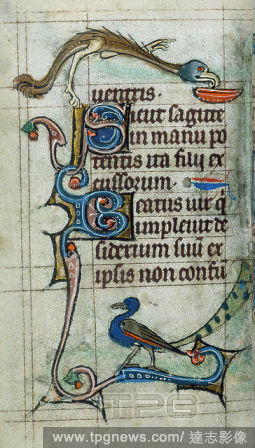 uentris.
Sicut sagitte
in manu po
tentis ita filij ex
cussorum.
Beatus uir q
impleuit de
siderium suū ex
ipsis non confū
TPG
www.tpgnews.com/達志影像